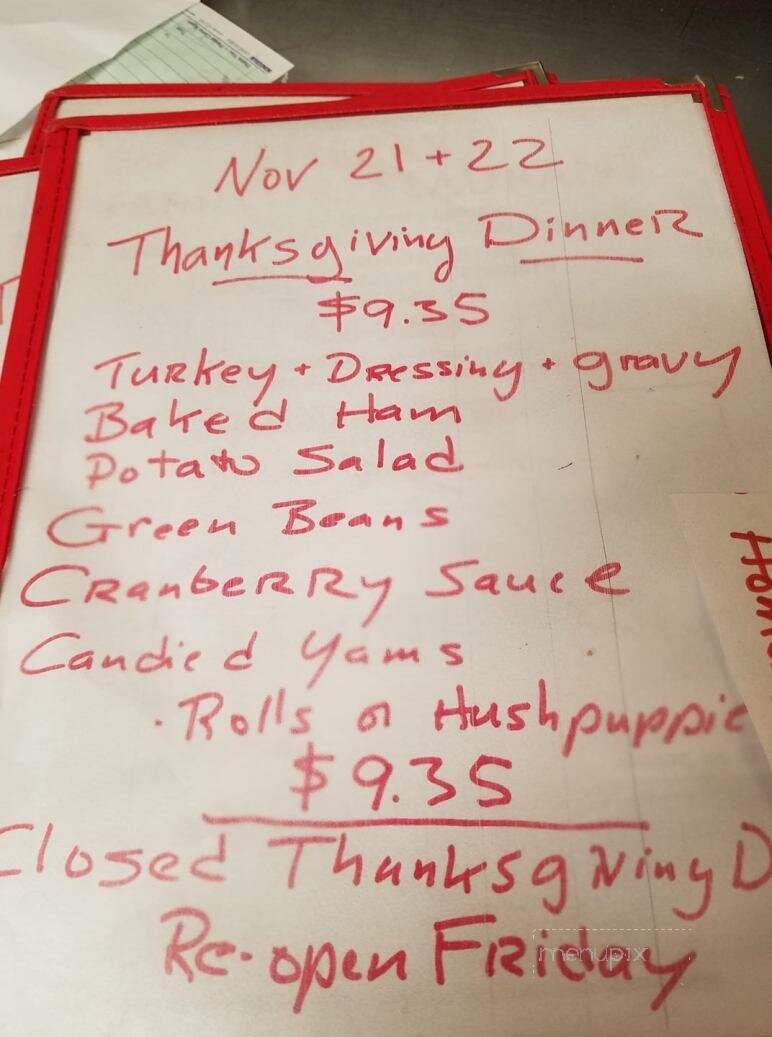 Nov 21 + 22
Thanksgiving Dinner
$9.35
Turkey + Dressing + gravy
Baked Ham
Potato Salad
Green Beans
Cranberry Sauce
Candied Yams
· Rolls or Hushpuppie
$9.35
Closed Thanksgiving D
Re-open Friday
menupix